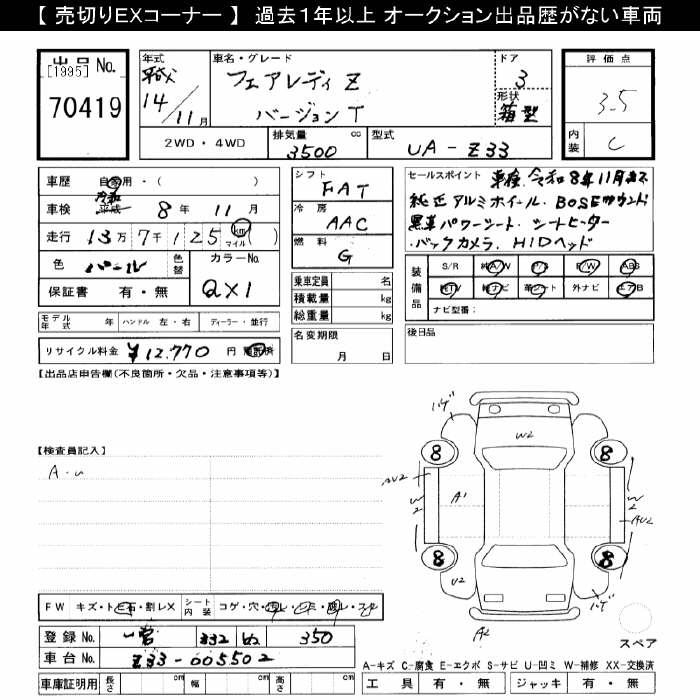 【 売切りEXコーナー 】 過去1年以上 オークション出品歴がない車両
出品 No.
[1995]
70419
年式
平成
14／11月
車名・グレード
フェアレディ Z
バージョン T
ドア
3
形状
箱型
評価点
3.5
内装
C
2WD・4WD
排気量
3500 cc
型式
UA-Z33
車歴 自家用・( )
車検 令和 平成 8年 11月
走行 13万7千125 km マイル ( )
色 パール 色替
カラーNo.
QX1
保証書 有・無
シフト
FAT
冷房
AAC
燃料
G
乗車定員 名
積載量 kg
総重量 kg
セールスポイント 車検 令和8年11月まで
純正アルミホイール. BOSEサウンド
黒革パワーシート. シートヒーター
バックカメラ. HIDヘッド
装備品
S/R 純A/W P/S P/W ABS
純TV 純ナビ 革シート 外ナビ エアB
ナビ型番：
モデル年式 年 ハンドル 左・右 ディーラー・並行
リサイクル料金 ¥12,770 円 預託済
名変期限
月 日
後日品
【出品店申告欄(不良箇所・欠品・注意事項等)】
【検査員記入】
ハゲ
W2
8
8
A1
W2
W2
AU2
8
8
U2
ハゲ
A2
スペア
FW キズ・トビ石・割レX シート内装 コゲ・穴・汚レ・シミ・
登録 No. 332 350
車台 No. Z33-005502
車庫証明用 長さ cm 幅 cm 高さ cm
A-キズ C-腐食 E-エクボ S-サビ U-凹ミ W-補修 XX-交換済
工具 有・無 ジャッキ 有・無